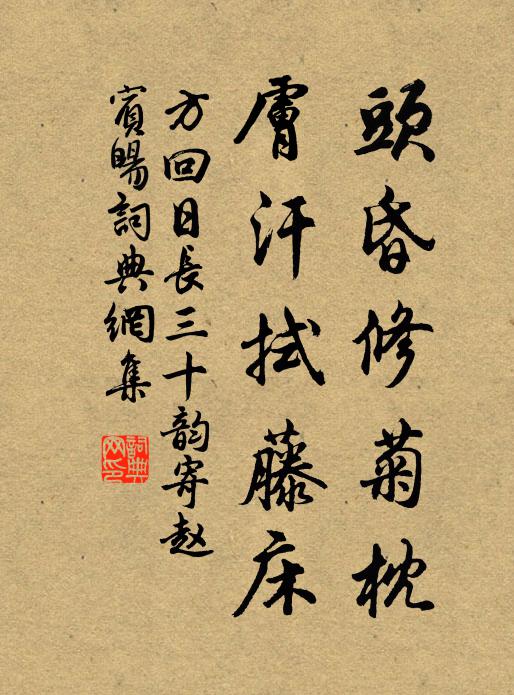 頭昏修菊枕
膚汗拭藤床
方回日長三十韵寄赵
賓暘詞典網集
詞典网印